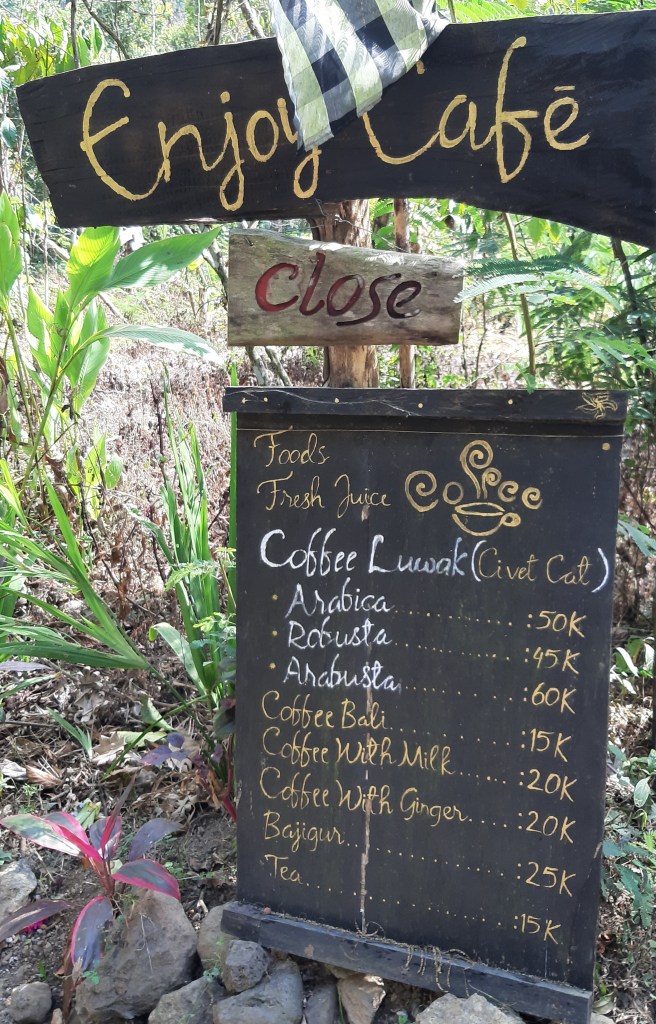 Enjoy Cafē
close
Foods
Fresh Juice
Coffee
Coffee Luwak (Civet Cat)
• Arabica..............:50K
• Robusta..............:45K
• Arabusta..............:60K
Coffee Bali..............:15K
Coffee With Milk.......:20K
Coffee With Ginger......:20K
Bajigur..................:25K
Tea......................:15K